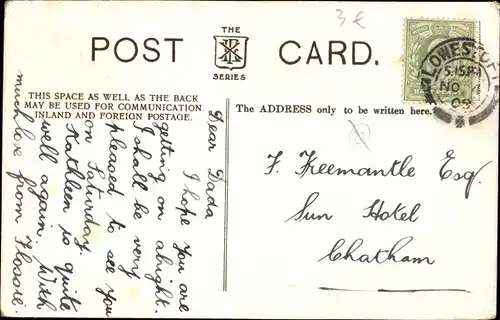 3 €
POST CARD.
THE
SERIES
THIS SPACE AS WELL AS THE BACK
MAY BE USED FOR COMMUNICATION.
INLAND AND FOREIGN POSTAGE.
The ADDRESS only to be written here.
LOWESTOF
5.15PM
NO
09
F. Freemantle Esq.
Sun Hotel
Chatham.
Dear Dada
I hope you are
getting on alright.
I shall be very
pleased to see you
on Saturday.
Kathleen is quite
well again. With
much love from